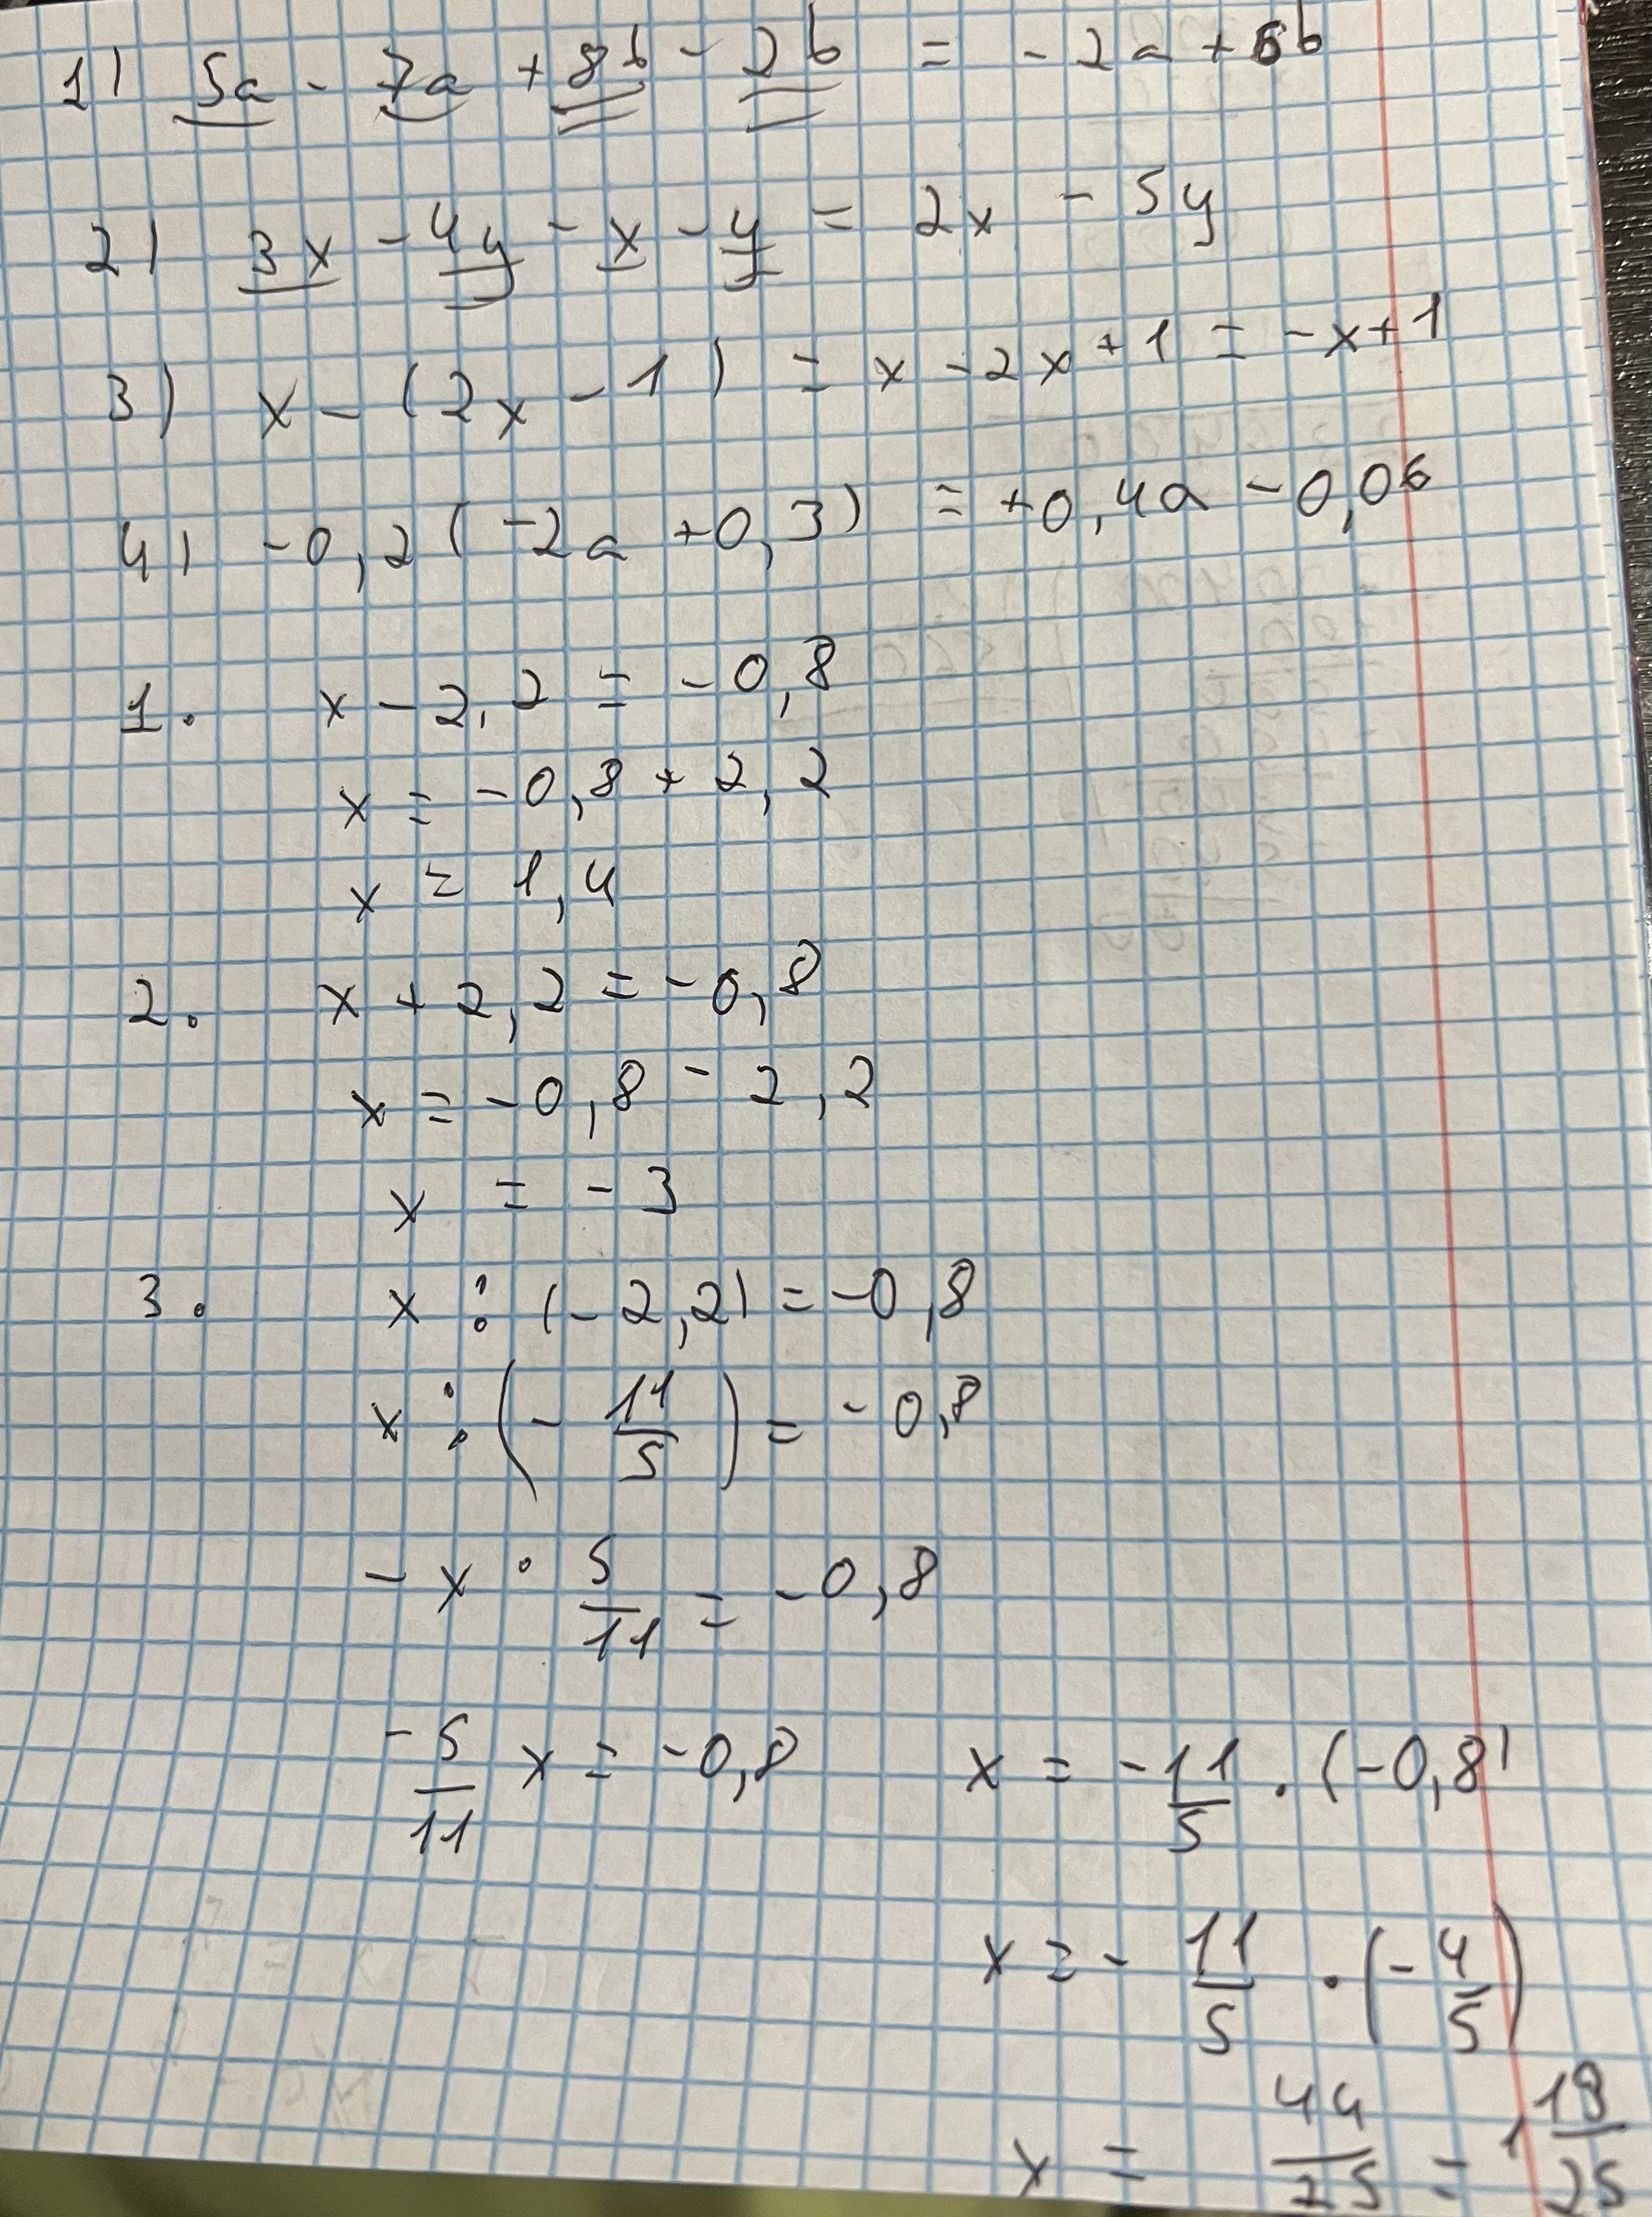 1) 5a - 7a + 8b - 2b = - 2a + 6b
2) 3x - 4y - x - y = 2x - 5y
3) x - (2x - 1) = x - 2x + 1 = - x + 1
4) -0,2 (-2a + 0,3) = +0,4a - 0,06
1. x - 2,2 = -0,8
x = -0,8 + 2,2
x = 1,4
2. x + 2,2 = -0,8
x = -0,8 - 2,2
x = - 3
3. x : (-2,2) = -0,8
x : (- 11/5) = -0,8
- x · 5/11 = -0,8
-5/11 x = -0,8 x = - 11/5 · (-0,8)
x = - 11/5 · (- 4/5)
x = 44/25 = 1 19/25